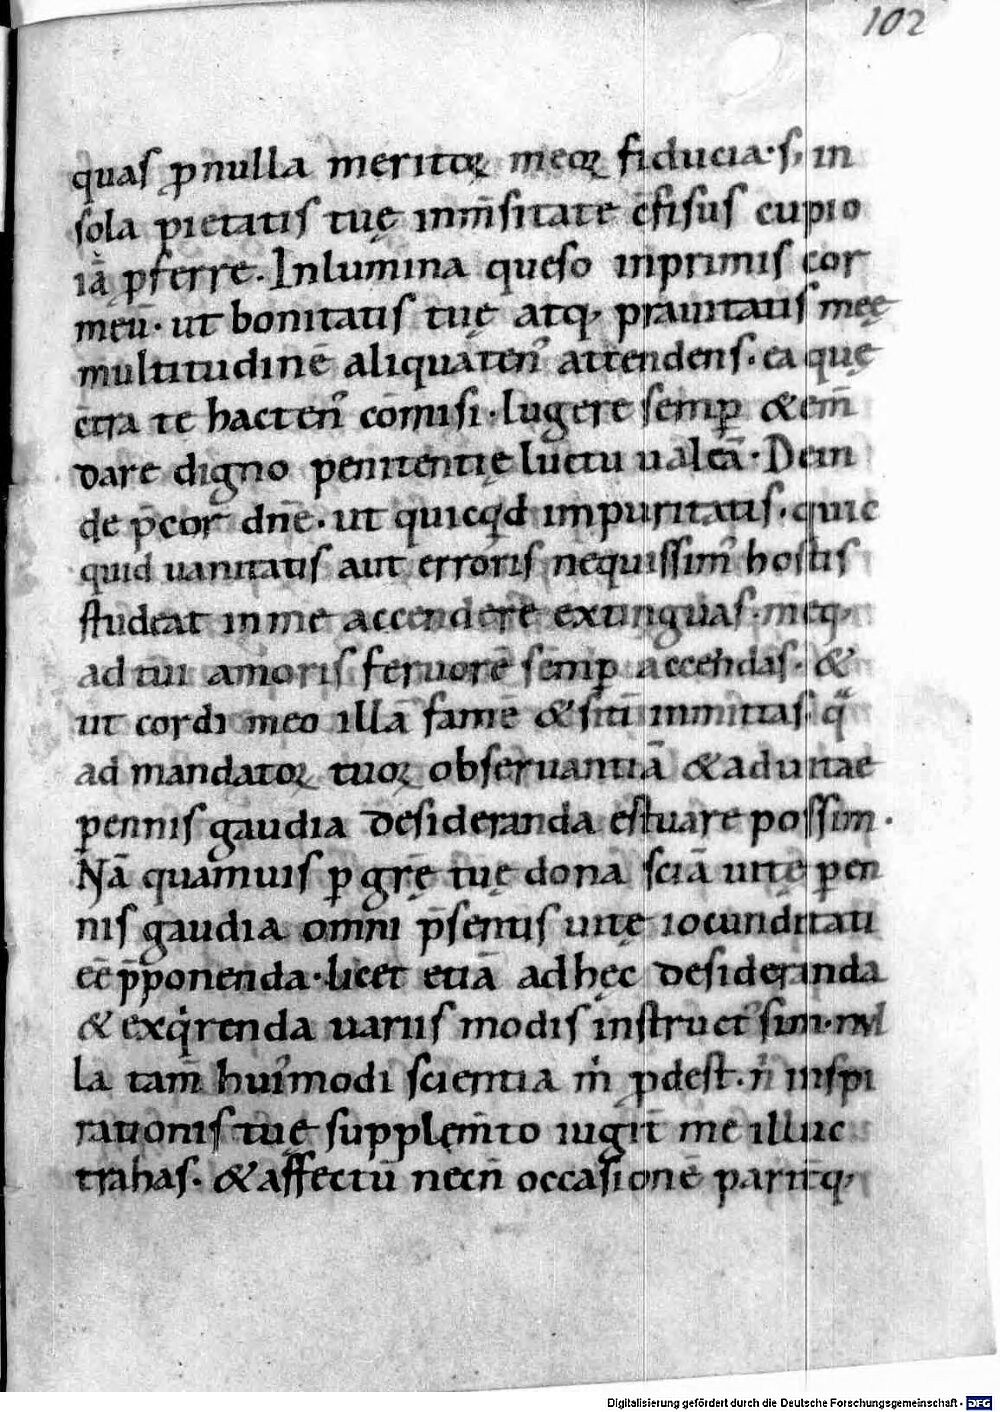 102
quas ꝓ nulla meritoꝝ meoꝝ fiducia · s; in
sola pietatis tuę inm̄sitate c̄fisus cupio
iā ꝓferre. Inlumina queso inprimis cor
meū · ut bonitatis tuę atq; prauitatis meę
multitudinē aliquaten᾽ attendens. ea quę
c̄tra te hacten᾽ cōmisi · lugere semꝑ & em̄
dare digno penitentię luctu ualeā · Dein
de p̄cor dn̄e. ut quicqͥd impuritatis. quic
quid uanitatis aut erroris nequissim᾽ hostis
studeat in me accendere extinguas. meq;
ad tui amoris feruorē semꝑ accendas. &
ut cordi meo illā famē & sitī inmittas. qͣ
ad mandatoꝝ tuoꝝ obseruantiā & ad uitae
ꝑennis gaudia desideranda estuare possim.
Nā quamuis ꝑ grę̄ tuę donā sciā uitę ꝑen
nis gaudia omni p̄sentis uitę iocunditati
eē p̄ponenda · licet etiā ad hęc desideranda
& exqͥrenda uariis modis instruct᾽ sim. nul
la tam̄ hui᾽modi scientia mͥ ꝓdest. nͥ inspi
rationis tuę supplem̄to iugit̄ me illuc
trahas. & affectū necn̄ occasionē parit̄q;
Digitalisierung gefördert durch die Deutsche Forschungsgemeinschaft - DFG